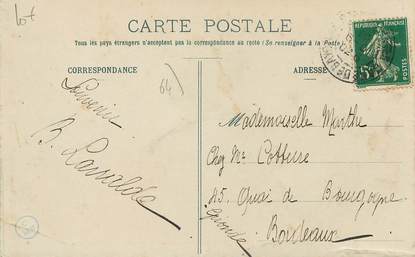 Lot
CARTE POSTALE
Tous les pays étrangers n'acceptent pas la correspondance au recto (Se renseigner à la Poste)
CORRESPONDANCE
ADRESSE
64
Souvenir
B.
Mademoiselle Marthe
Chez Mr
45 Quai de Bourgogne
Bordeaux
Gironde
REPUBLIQUE FRANÇAISE
5c
POSTES